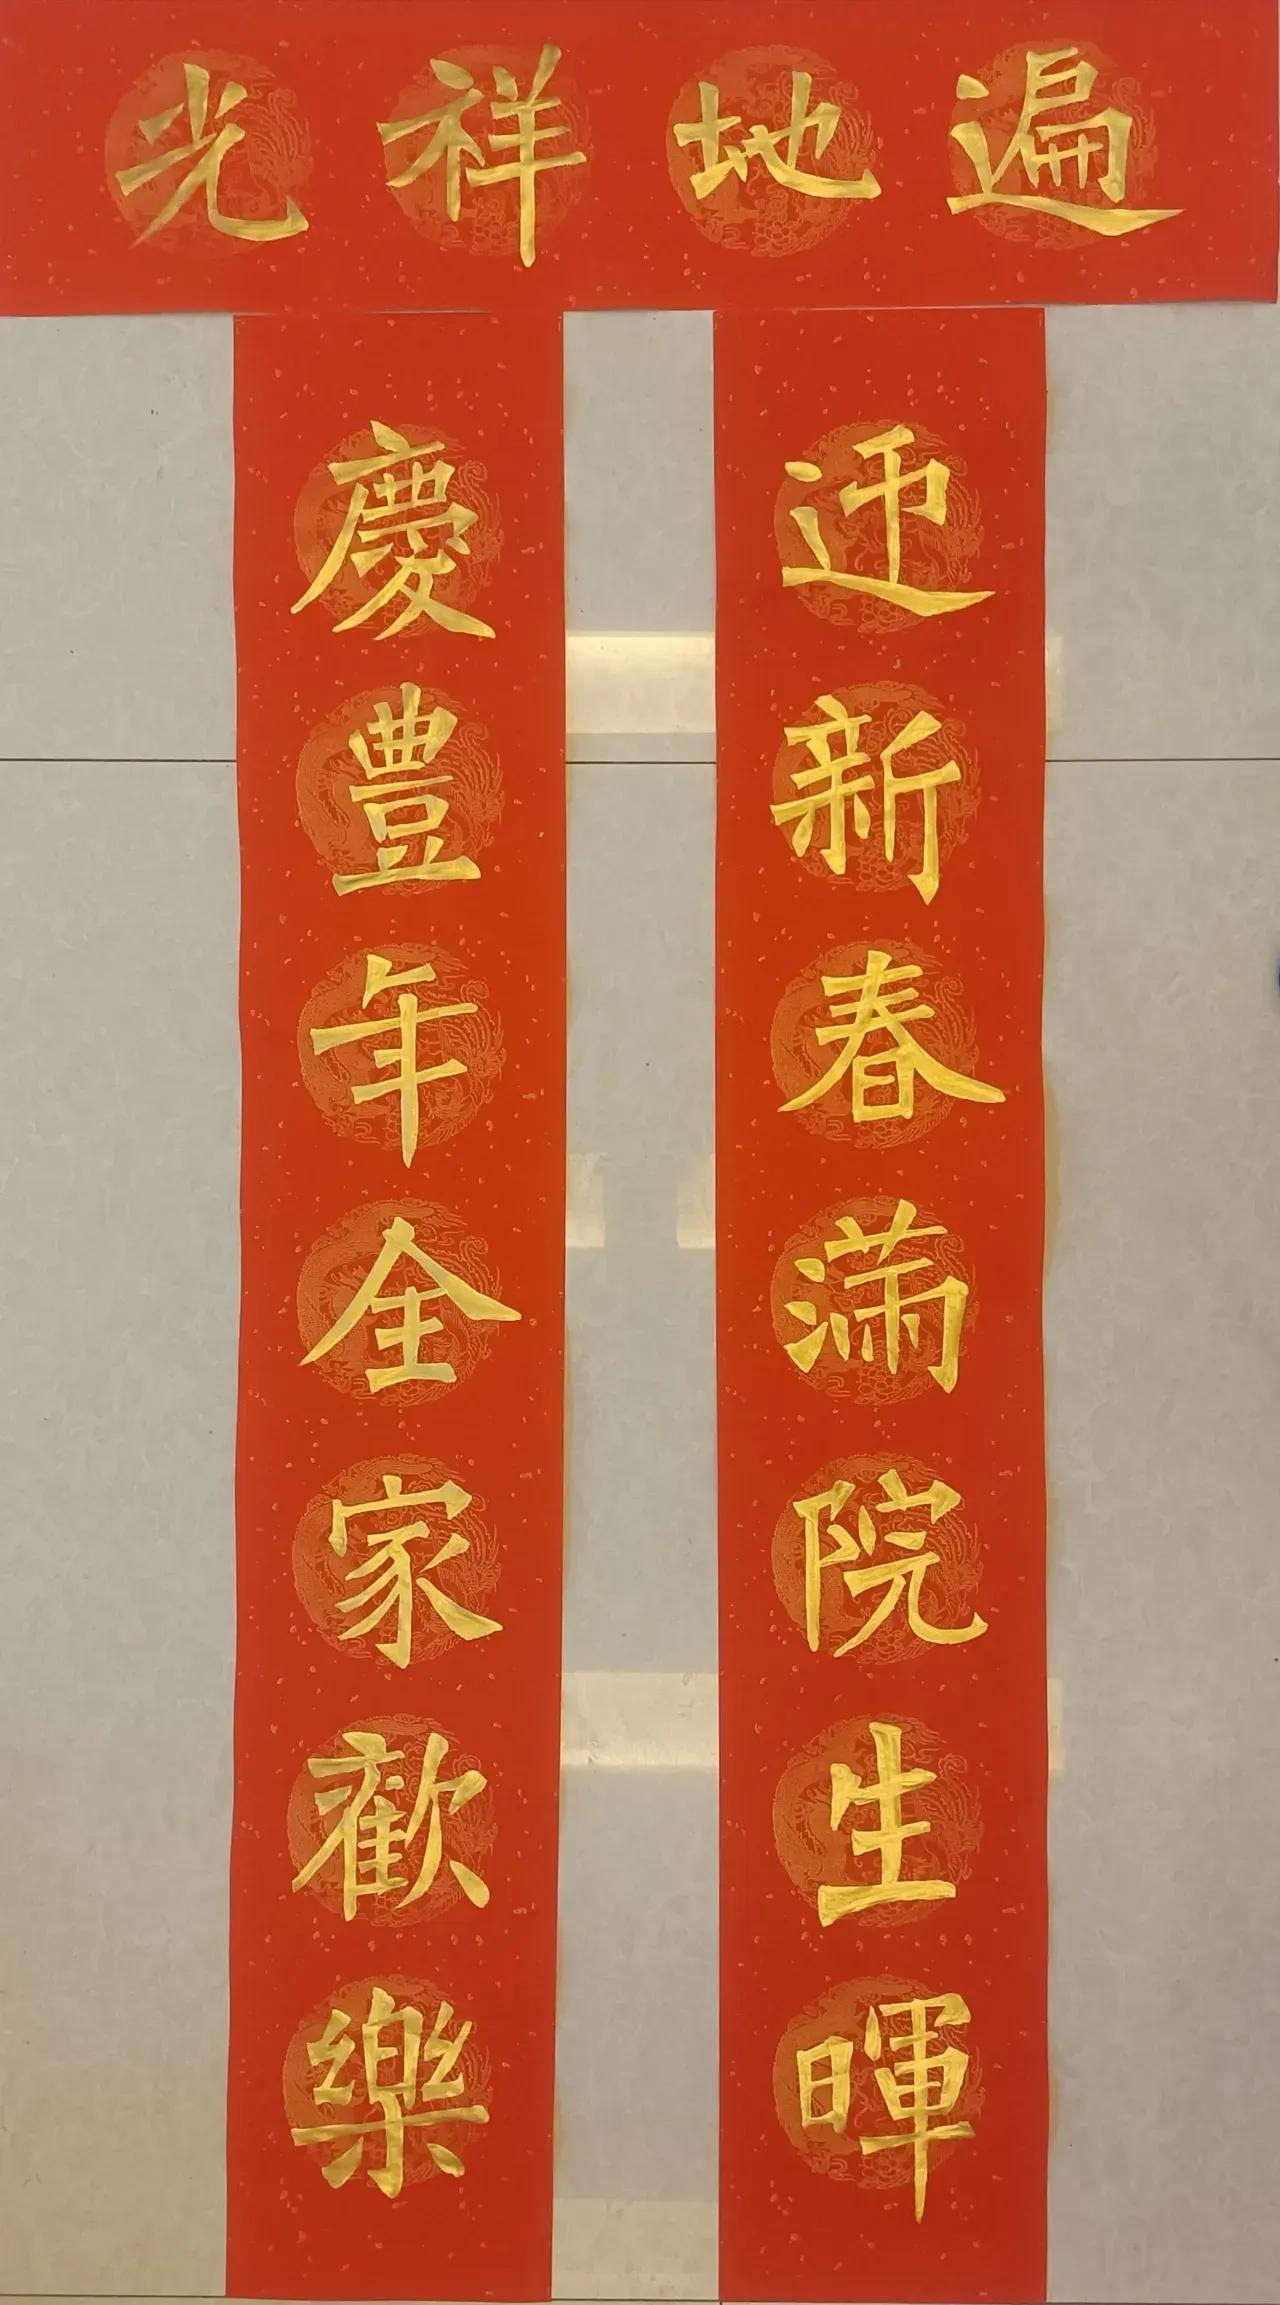 遍地祥光
迎新春滿院生暉
慶豐年全家歡樂